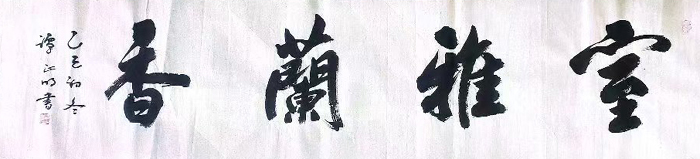 室雅蘭香
乙巳初冬
譚正明書